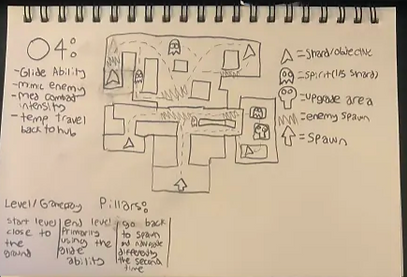 04:
-Glide Ability
-mimic enemy
-med combat
intensity
-temp travel
back to hub
=Shard/objective
=spirit(1/5 shard)
=upgrade area
=enemy spawn
=spawn
Level/Gameplay Pillars:
start level
close to
the
ground
end level
Primarily
using the
glide
ability
go back
to spawn
and navigate
differently
the second
time